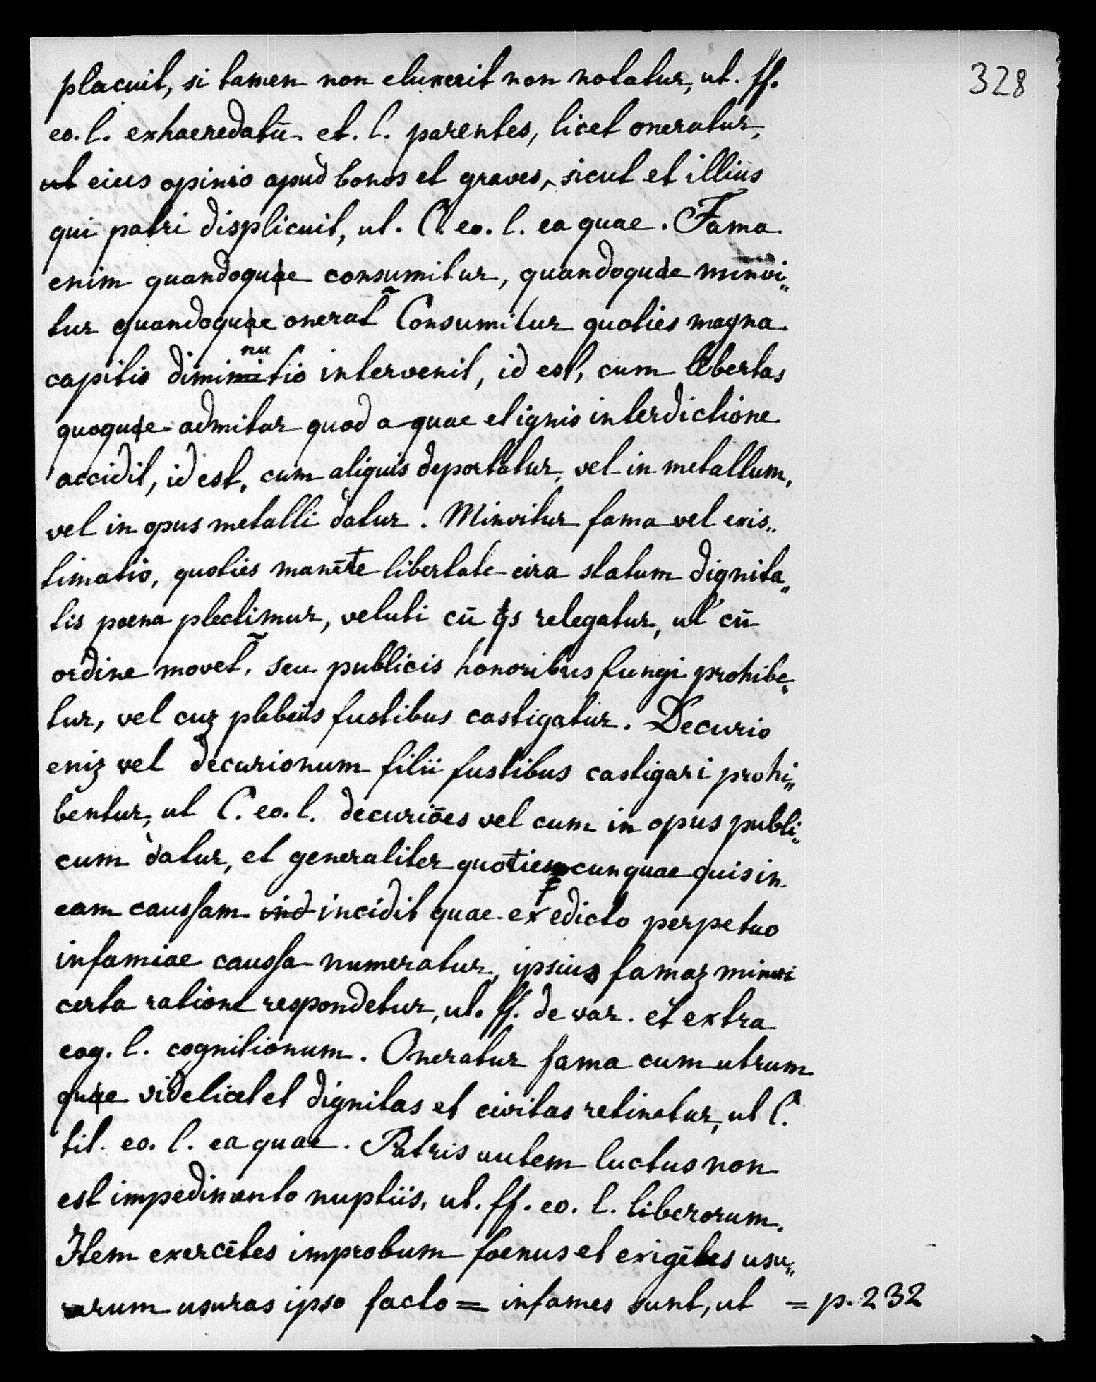 328
placuit, si tamen non eluxerit non notatur, ut. ff.
eo. l. exhaeredatū. et. l. parentes, licet oneratur,
ut eius opinio apud bonos et graves, sicut et illius
qui patri displicuit, ut. C. eo. l. ea quae. Fama
enim quandoque consumitur, quandoque minui„
tur quandoque onerat̃ Consumitur quoties magna
capitis diminutio intervenit, id est, cum libertas
quoque admitur quod a quae et ignis interdictione
accidit, id est, cum aliquis deportatur, vel in metallum,
vel in opus metalli datur. Minuitur fama vel exis„
timatio, quoties manēte libertate circa statum dignita„
tis poena plectimur, veluti cū qs relegatur, ut cū
ordine movet̃, seu publicis honoribus fungi prohibe„
tur, vel cuz plebeiis fustibus castigatur. Decurio
eniz vel decurionum filii fustibus castigari prohi„
bentur, ut C. eo. l. decuriões vel cum in opus publi„
cum datur, et generaliter quoties cunquae quis in
eam caussam incidit quae ex edicto perpetuo
infamiae caussa numeratur, ipsius famaz minui
certa ratione respondetur, ut. ff. de var. et extra
cog. l. cognitionum. Oneratur fama cum utrum
que videlicet et dignitas et civitas retinetur, ut C.
tit. eo. l. ea quae. Patris autem luctus non
est impedimento nuptiis, ut. ff. eo. l. liberorum.
Item exercētes improbum foenus et exigētes usu„
rarum usuras ipso facto = infames sunt, ut = p. 232